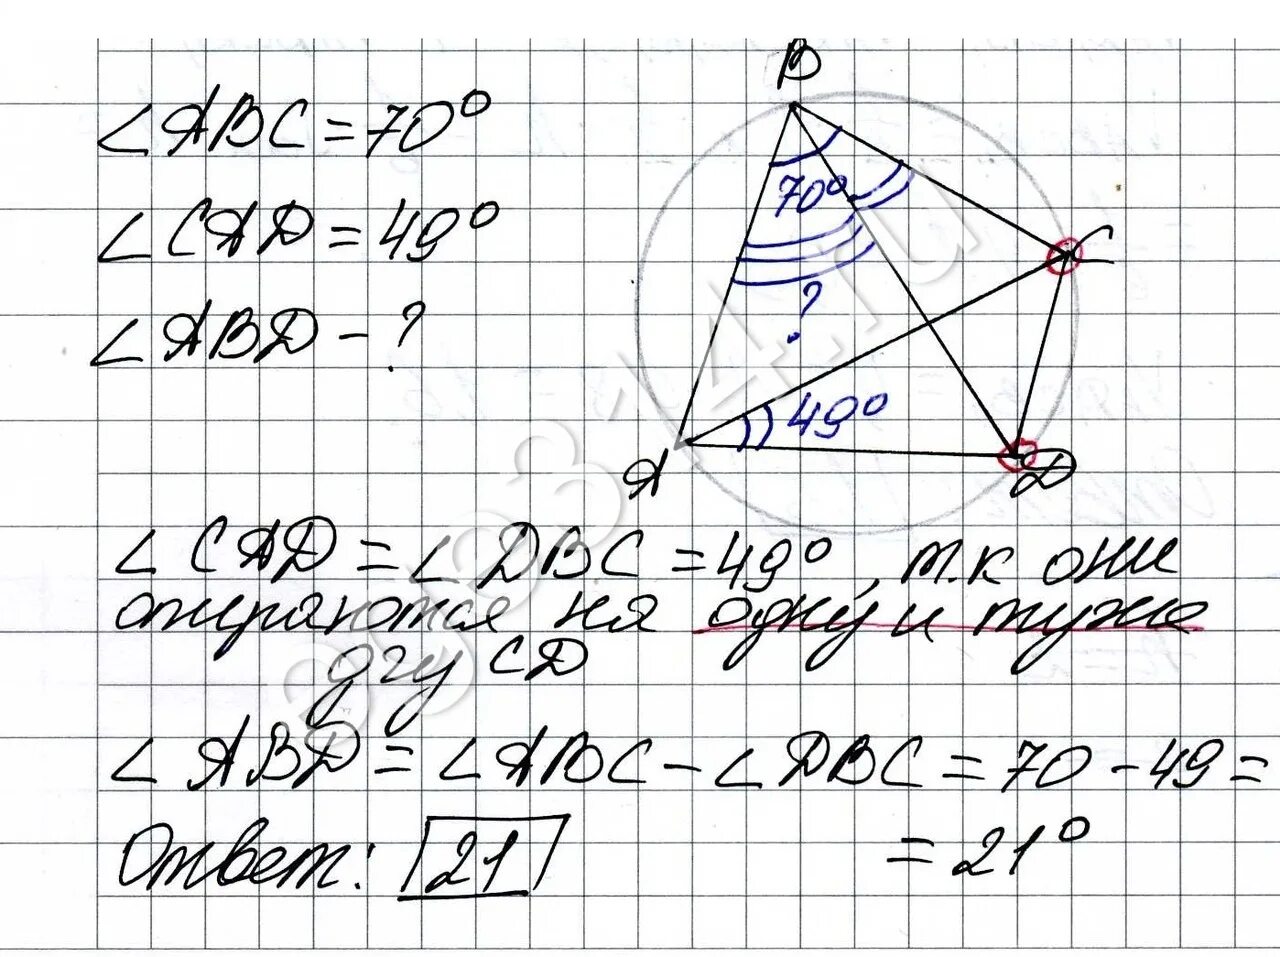 ∠ABC = 70°
∠CAD = 49°
∠ABD - ?
B
70°
C
?
49°
A
D
∠CAD = ∠DBC = 49°, т.к они
опираются на одну и туже
дгу CD
∠ABD = ∠ABC - ∠DBC = 70 - 49 =
= 21°
Ответ: 21